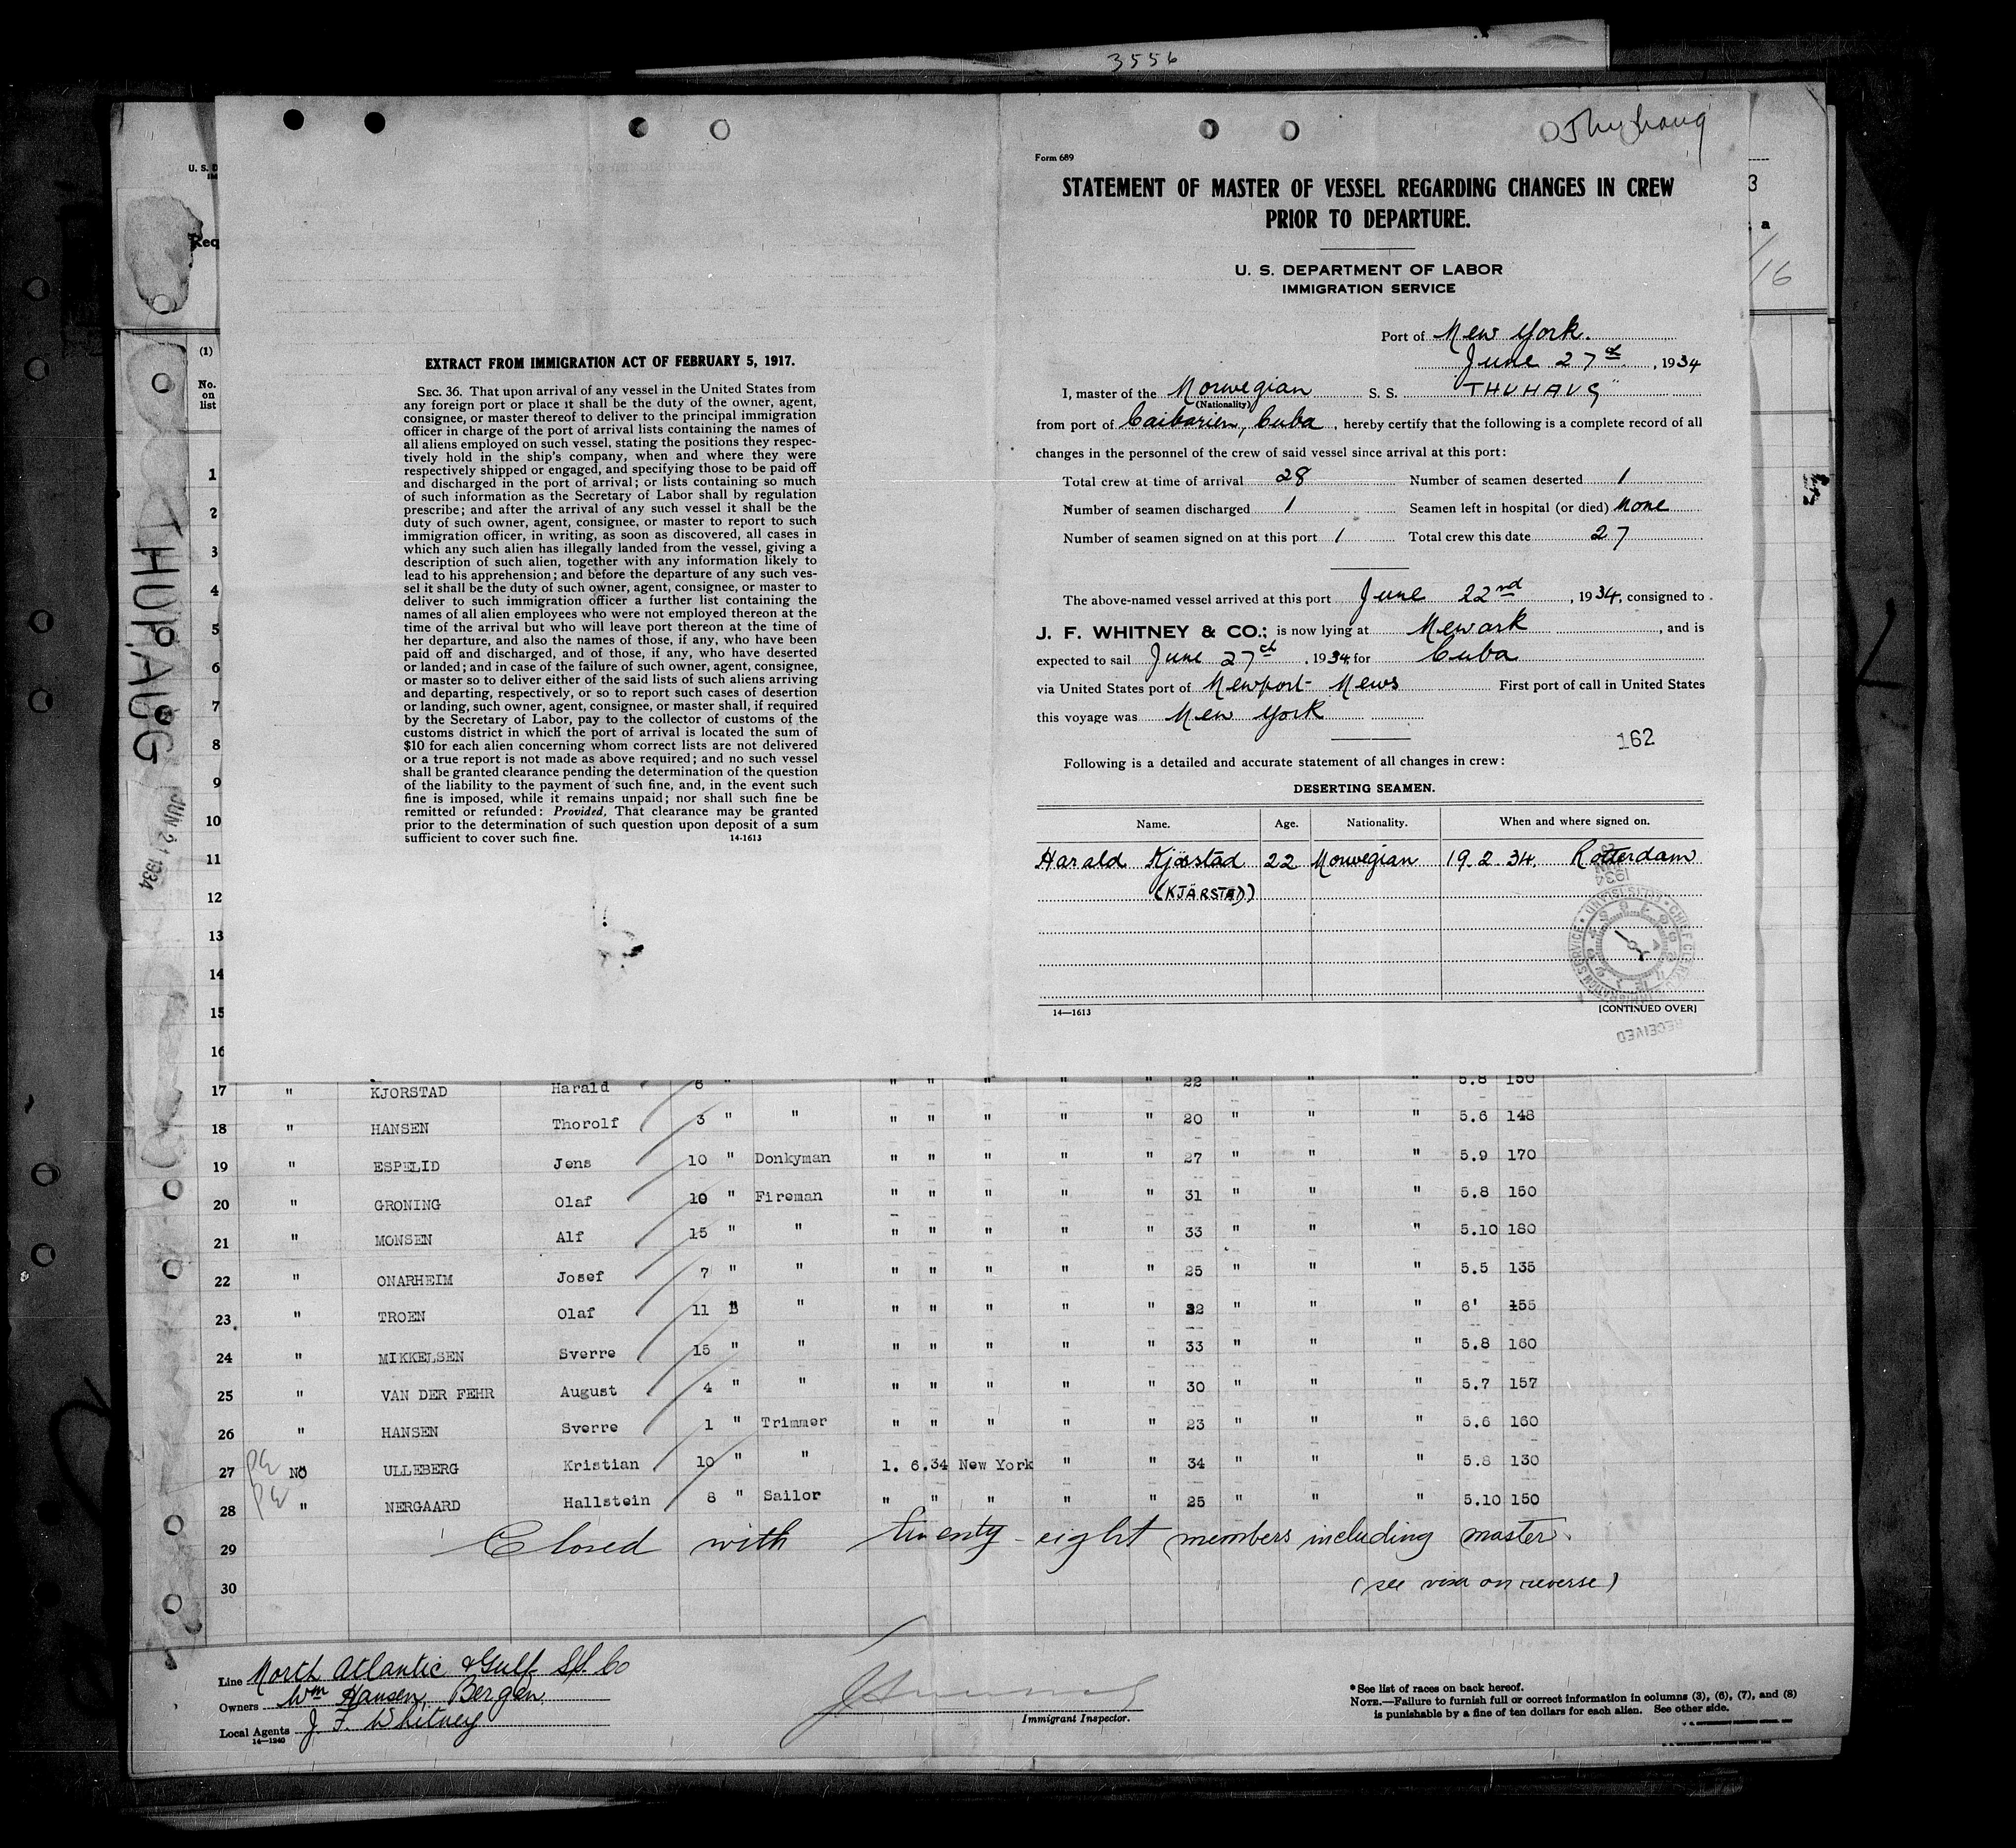 3556
Thuhaug
U. S. D
Req
3
a
16
Form 689
STATEMENT OF MASTER OF VESSEL REGARDING CHANGES IN CREW
PRIOR TO DEPARTURE.
U. S. DEPARTMENT OF LABOR
IMMIGRATION SERVICE
Port of New York.
June 27th, 1934
I, master of the Norwegian S. S. "THUHAUG"
(Nationality)
from port of Caibarien, Cuba, hereby certify that the following is a complete record of all
changes in the personnel of the crew of said vessel since arrival at this port:
Total crew at time of arrival 28 Number of seamen deserted 1
Number of seamen discharged 1 Seamen left in hospital (or died) None
Number of seamen signed on at this port 1 Total crew this date 27
The above-named vessel arrived at this port June 22nd, 1934, consigned to
J. F. WHITNEY & CO.; is now lying at Newark, and is
expected to sail June 27th, 1934, for Cuba
via United States port of Newport News First port of call in United States
this voyage was New York
162
Following is a detailed and accurate statement of all changes in crew:
DESERTING SEAMEN.
Name. Age. Nationality. When and where signed on.
Harald Kjöstad 22 Norwegian 19.2.34. Rotterdam
(KJÄRSTAD)
14—1613 [CONTINUED OVER]
RECEIVED
EXTRACT FROM IMMIGRATION ACT OF FEBRUARY 5, 1917.
SEC. 36. That upon arrival of any vessel in the United States from
any foreign port or place it shall be the duty of the owner, agent,
consignee, or master thereof to deliver to the principal immigration
officer in charge of the port of arrival lists containing the names of
all aliens employed on such vessel, stating the positions they respec-
tively hold in the ship's company, when and where they were
respectively shipped or engaged, and specifying those to be paid off
and discharged in the port of arrival; or lists containing so much
of such information as the Secretary of Labor shall by regulation
prescribe; and after the arrival of any such vessel it shall be the
duty of such owner, agent, consignee, or master to report to such
immigration officer, in writing, as soon as discovered, all cases in
which any such alien has illegally landed from the vessel, giving a
description of such alien, together with any information likely to
lead to his apprehension; and before the departure of any such ves-
sel it shall be the duty of such owner, agent, consignee, or master to
deliver to such immigration officer a further list containing the
names of all alien employees who were not employed thereon at the
time of the arrival but who will leave port thereon at the time of
her departure, and also the names of those, if any, who have been
paid off and discharged, and of those, if any, who have deserted
or landed; and in case of the failure of such owner, agent, consignee,
or master so to deliver either of the said lists of such aliens arriving
and departing, respectively, or so to report such cases of desertion
or landing, such owner, agent, consignee, or master shall, if required
by the Secretary of Labor, pay to the collector of customs of the
customs district in which the port of arrival is located the sum of
$10 for each alien concerning whom correct lists are not delivered
or a true report is not made as above required; and no such vessel
shall be granted clearance pending the determination of the question
of the liability to the payment of such fine, and, in the event such
fine is imposed, while it remains unpaid; nor shall such fine be
remitted or refunded: Provided, That clearance may be granted
prior to the determination of such question upon deposit of a sum
sufficient to cover such fine. 14-1613
THUHAUG
JUN 21 1934
(1)
No.
on
list
1
2
3
4
5
6
7
8
9
10
11
12
13
14
15
16
17 " KJORSTAD Harald 6 " " " " " " 22 " " " 5.8 150
18 " HANSEN Thorolf 3 " " " " " " " 20 " " " 5.6 148
19 " ESPELID Jens 10 " Donkyman " " " " " 27 " " " 5.9 170
20 " GRONING Olaf 10 " Fireman " " " " " 31 " " " 5.8 150
21 " MONSEN Alf 15 " " " " " " " 33 " " " 5.10 180
22 " ONARHEIM Josef 7 " " " " " " " 25 " " " 5.5 135
23 " TROEN Olaf 11 " " " " " " " 32 " " " 6' 155
24 " MIKKELSEN Sverre 15 " " " " " " " 33 " " " 5.8 160
25 " VAN DER FEHR August 4 " " " " " " " 30 " " " 5.7 157
26 " HANSEN Sverre 1 " Trimmer " " " " " 23 " " " 5.6 160
27 NO ULLEBERG Kristian 10 " " 1. 6.34 New York " " 34 " " " 5.8 130
28 " NERGAARD Hallstein 8 " Sailor " " " " " 25 " " " 5.10 150
29 Closed with twenty-eight members including master.
30 (see visa on reverse)
Line North Atlantic & Gulf SS. Co
Owners Wm Hansen, Bergen
Local Agents J. F. Whitney
14—1240
Immigrant Inspector.
*See list of races on back hereof.
NOTE.—Failure to furnish full or correct information in columns (3), (6), (7), and (8)
is punishable by a fine of ten dollars for each alien. See other side.